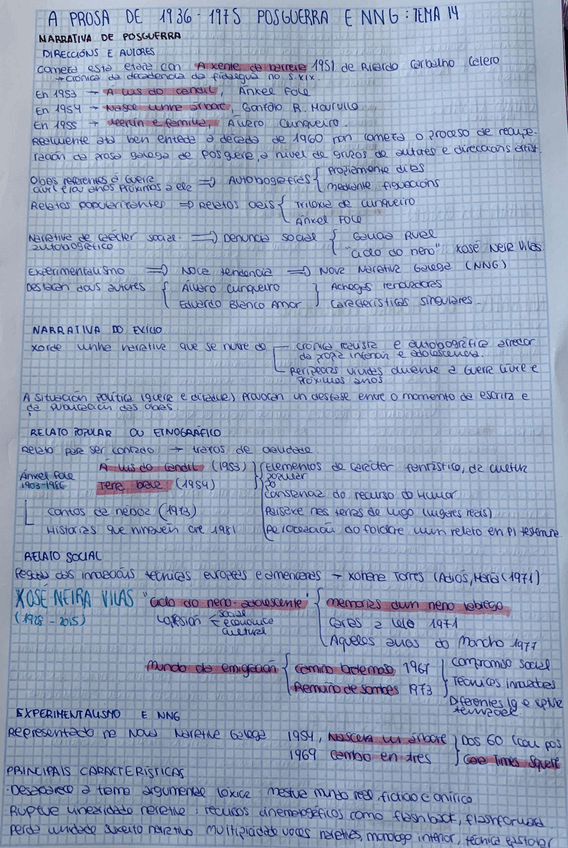 A PROSA DE 1936-1975 POSGUERRA E NNG: TEMA 14
NARRATIVA DE POSGUERRA
DIRECCIÓNS E AUTORES
Comeza esta etapa con A xente da barreira 1951 de Ricardo Carballo Calero
→ crónica da decadencia da fidalguía no S.XIX.
En 1953 → A lus do candil, Ánxel Fole
En 1954 → Nasce unha árbore, Gonzalo R. Mourullo
En 1955 → Merlín e familia, Álvaro Cunqueiro.
Realmente ata ben entrada a década de 1960 non comeza o proceso de recupe-
ración da prosa galega de posguerra, a nivel de grupos de autores e direccións
Obras referentes á Guerra
Civil e aos anos próximos a ela ⇒ Autobiográficas { Propiamente ditas
mediante figuracións
Relatos popularizantes ⇒ Relatos orais { Triloxía de Cunqueiro
Ánxel Fole
Narrativa de carácter social-
autobiográfico ⇒ Denuncia social {
"Ciclo do neno" Xosé Neira Vilas
Experimentalismo ⇒ Nova tendencia ⇒ Nova Narrativa Galega (NNG)
Destacan dous autores { Álvaro Cunqueiro } Achegas renovadoras
Eduardo Blanco Amor } Características singulares.
NARRATIVA DO EXILIO
Xorde unha narrativa que se nutre da crónica realista e autobiográfica arredor
da propia infancia e adolescencia.
Peripecias vividas durante a Guerra Civil e
próximos anos
A situación política (guerra e ditadura) provocan un desfase entre o momento de escrita e
de publicación das obras
RELATO POPULAR OU ETNOGRÁFICO
Relato para ser contado → trazos de oralidade
Ánxel Fole
1903-1986
A lus do candil (1953) { Elementos de carácter fantástico, da cultura
popular
Terra brava (1954)
Contos da néboa (1973)
Historias que ninguén cre 1981
Consenaz do recurso do humor
Paisaxe nas terras de Lugo (lugares reais)
RELATO SOCIAL
Pegada das innovacións técnicas europeas e americanas → Xohana Torres (Adiós, María (1971)
XOSÉ NEIRA VILAS
(1928-2015)
"Ciclo do neno-adolescente" { Memorias dun neno labrego
Cartas a Lelo 1971
Aqueles anos do Moncho 1977
social
económica
cultural
Mundo da emigración { Camiño bretemoso 1967
Remuíño de sombras 1973
Compromiso social
Técnicas innovadoras
EXPERIMENTALISMO E NNG
Representado na Nova Narrativa Galega 1954, Nascera un árbore
1969 Cambio en tres
Dos 60
PRINCIPAIS CARACTERÍSTICAS
·Desaparece o tema argumental lóxico: mestura mundo real, ficticio e onírico
Ruptura linealidade narrativa: recursos cinematográficos como flashback, flashforward
Perda unidade suxeito narrativo multiplicidade voces narrativas, monólogo interior,